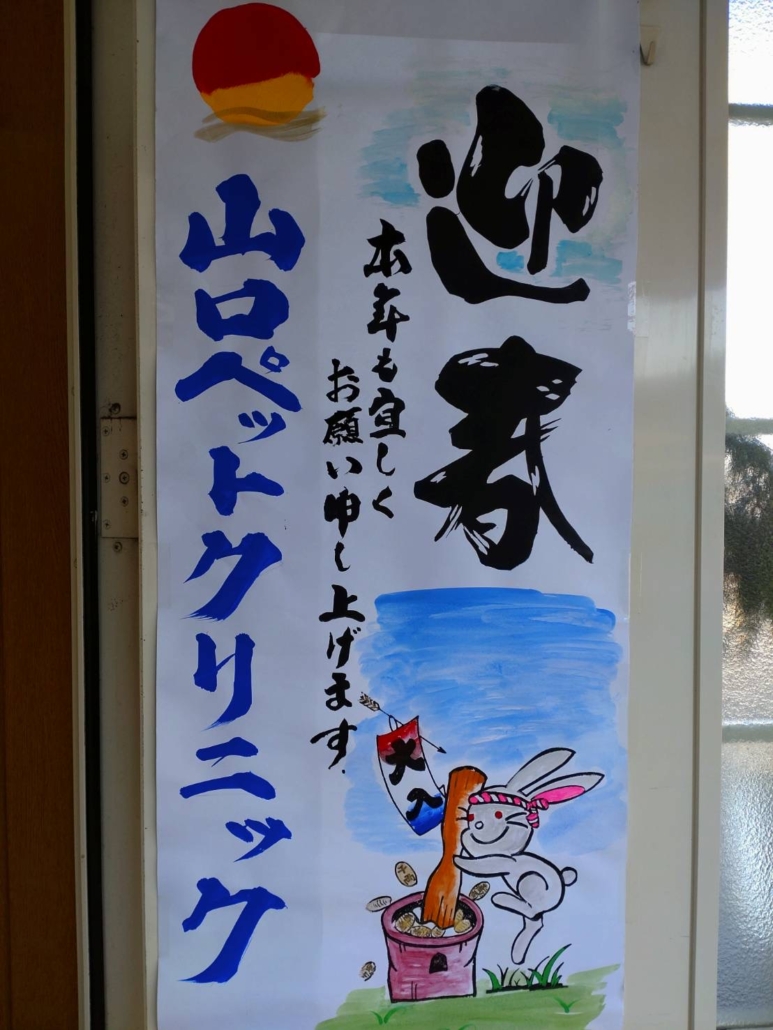 迎春
本年も宜しく
お願い申し上げます.
山口ペットクリニック
大入